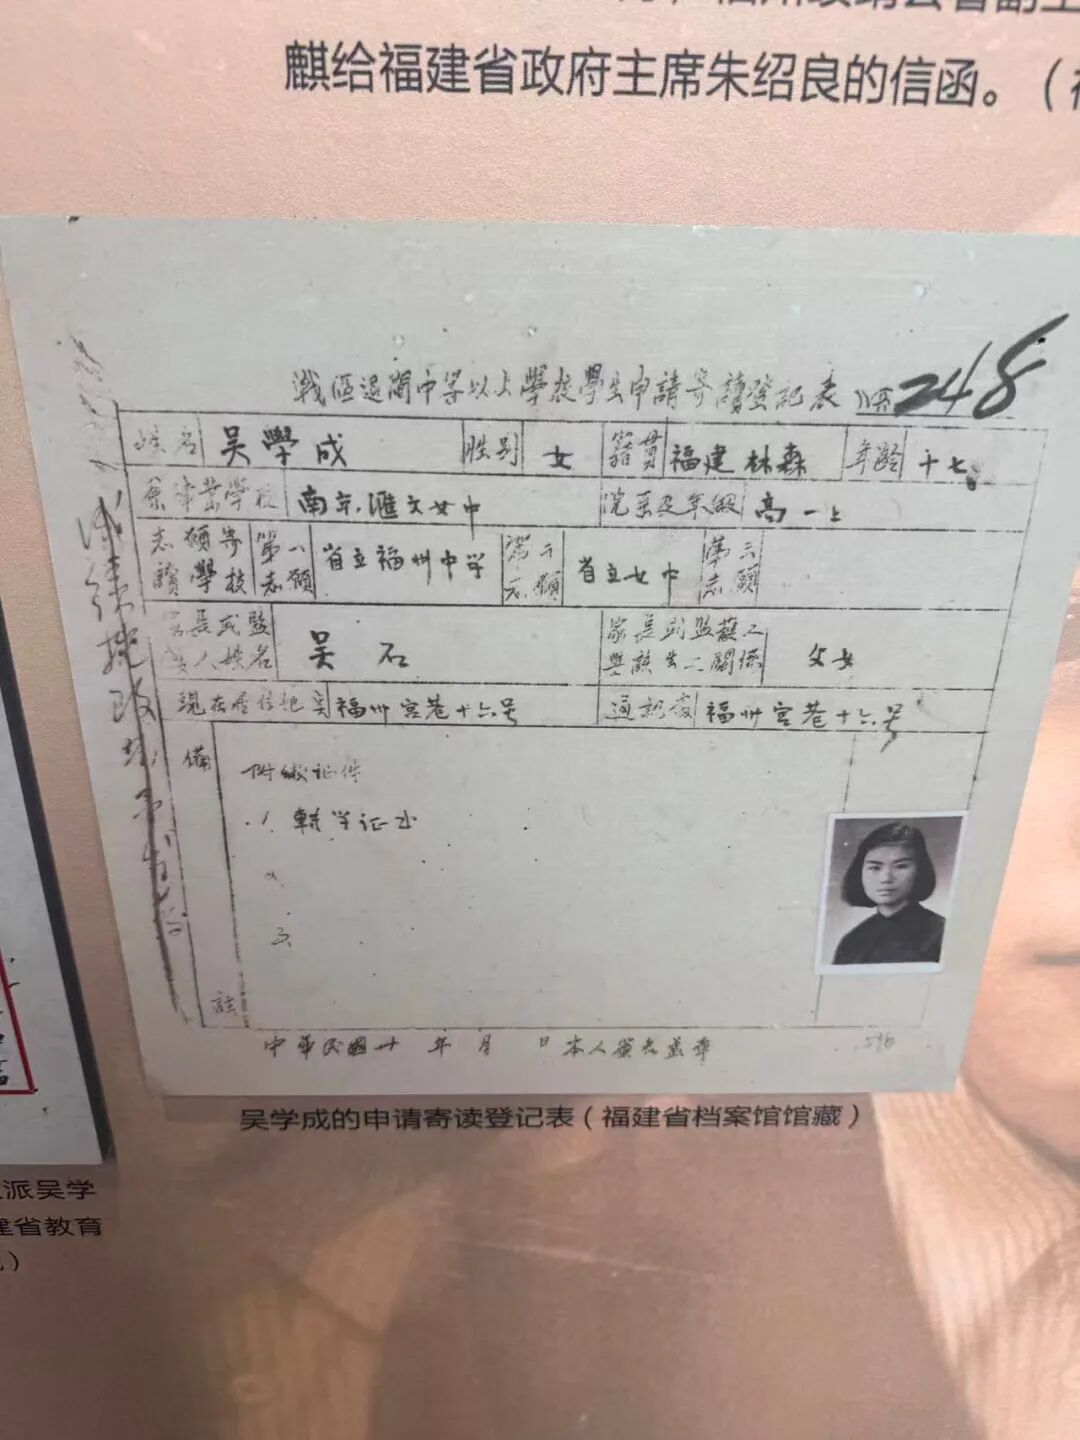 麒给福建省政府主席朱绍良的信函。（
戰區退閩中等以上學校學生申請寄讀登記表 248
姓名 吴學成 性别 女 籍貫 福建林森 年齡 十七
原肄業學校 南京滙文女中 院系及年級 高一上
志願寄讀學校 第一志願 省立福州中学 第二志願 省立女中 第三志願
家長或監護人姓名 吴石 家長或監護人與該生之關係 父女
現在居住地 福州宫巷十六号 通訊處 福州宫巷十六号
備註
附繳证件
1 轉学证书
二
三
中華民國卅 年 月 日本人簽名蓋章
吴学成的申请寄读登记表（福建省档案馆馆藏）
派吴学
建省教育